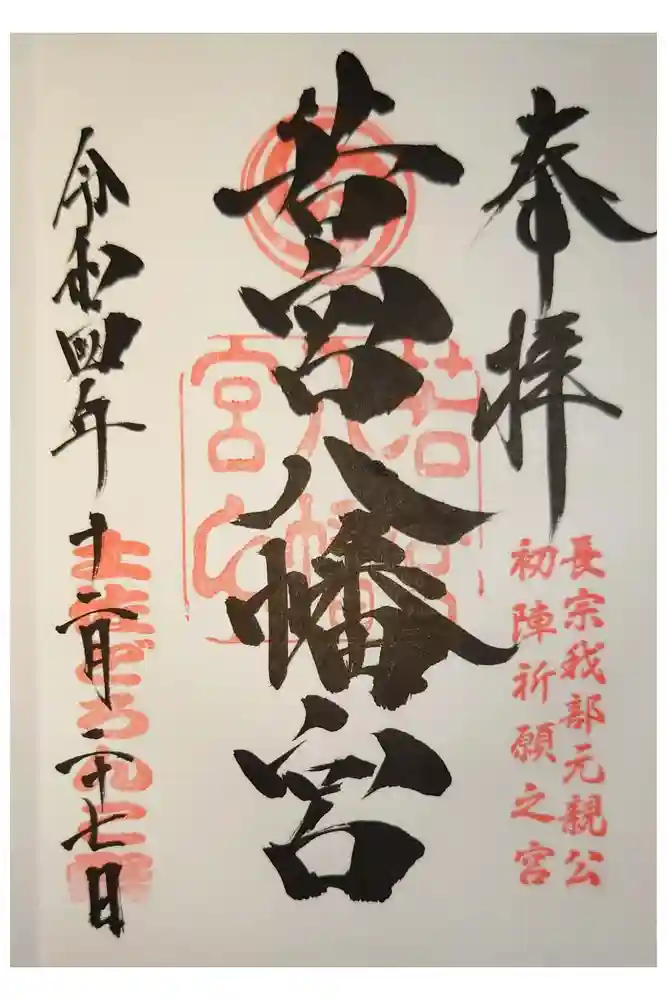 奉拝
長宗我部元親公
初陣祈願之宮
若宮八幡宮
若宮八幡宮
令和四年十二月二十七日
土佐どろんこ祭